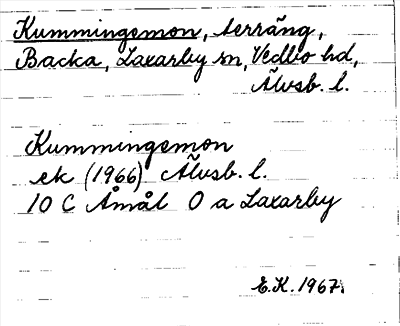 Kummingsmon, terräng,
Backa, Laxarby sn, Vedbo hd,
Älvsb. l.
Kummingsmon
ek (1966) Älvsb. l.
10 C Åmål 0 a Laxarby
E.K. 1967.